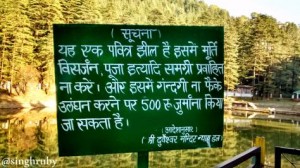 (सूचना)
यह एक पवित्र झील है इसमे मूर्ति
विसर्जन, पूजा इत्यादि सामग्री प्रवाहित
ना करे। और इसमे गन्दगी ना फेंके
उलंघन करने पर 500 रु जुर्माना किया
जा सकता है।
आदेशानुसार
(श्री दुर्वेश्वर मन्दिर न्यास डल)
@singhruby